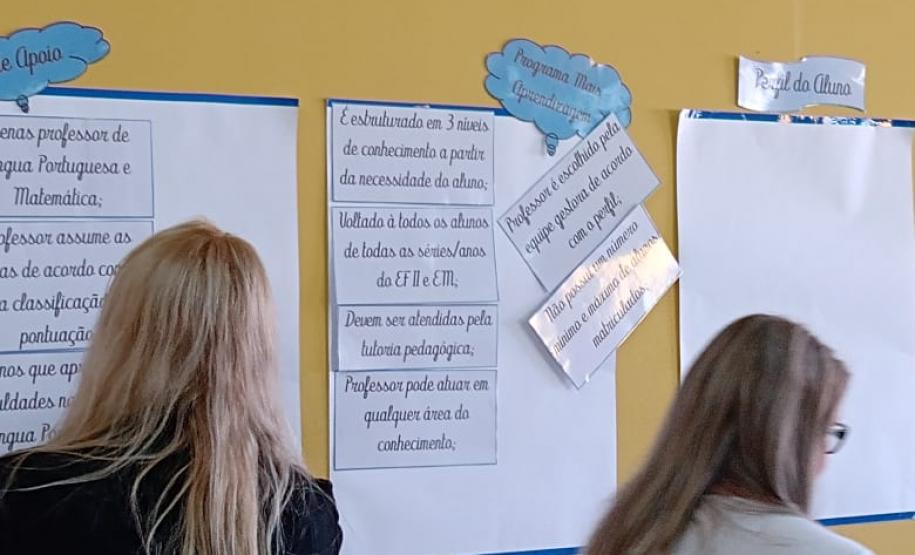 e Apoio
enas professor de
ngua Portuguesa e
Matemática;
ofessor assume as
as de acordo com
a classificação
pontuação
nos que ap
uldades n
ngua Po
Programa Mais
Aprendizagem
É estruturado em 3 níveis
de conhecimento a partir
da necessidade do aluno;
Voltado à todos os alunos
de todas as séries/anos
do EF II e EM;
Devem ser atendidas pela
tutoria pedagógica;
Professor pode atuar em
qualquer área do
conhecimento;
Professor é escolhido pela
equipe gestora de acordo
com o perfil;
Não possui um número
mínimo e máximo de alunos
matriculados;
Perfil do Aluno